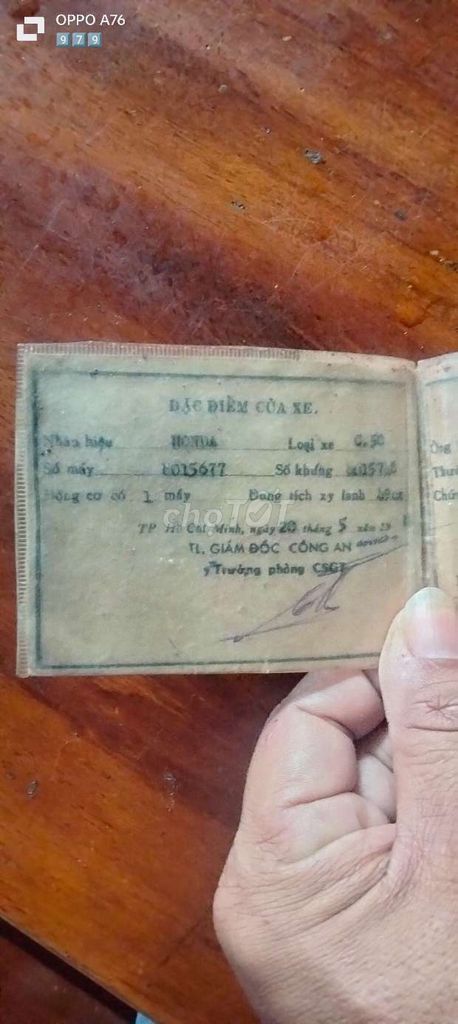 OPPO A76
979
ĐẶC ĐIỂM CỦA XE.
Nhãn hiệu HONDA Loại xe C.50
Số máy 6015677 Số khung
Động cơ có 1 máy Dung tích xy lanh 49cc
choTỐT
TP Hồ Chí Minh, ngày 20 tháng 5 năm 19
TL, GIÁM ĐỐC CÔNG AN
Trưởng phòng CSGT
Ông
Thườ
Chứn